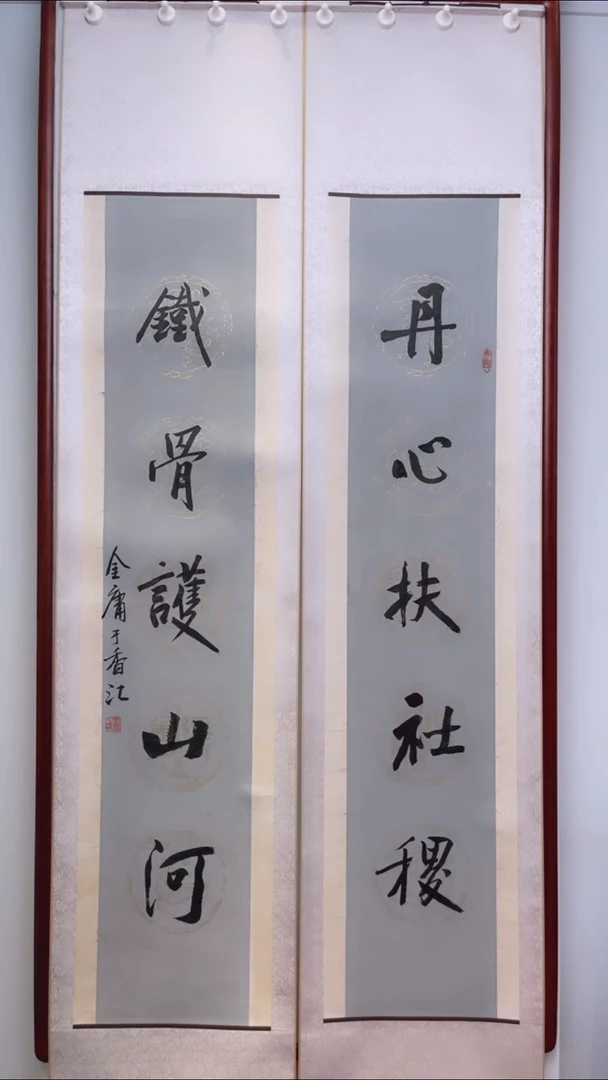 丹心扶社稷
鐵骨護山河
金庸于香江